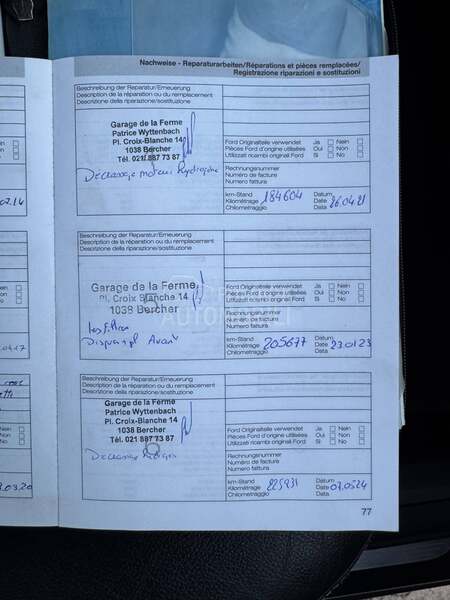 Nachweise - Reparaturarbeiten/Réparations et pièces remplacées/
Registrazione riparazioni e sostituzioni
Beschreibung der Reparatur/Erneuerung
Description de la réparation ou du remplacement
Descrizione della riparazione/sostituzione
Garage de la Ferme
Patrice Wyttenbach
Pl. Croix-Blanche 14
1038 Bercher
Tél. 021 887 73 87
Décrassage moteur
Ford Originalteile verwendet Ja Nein
Pièces Ford d'origine utilisées Oui Non
Utilizzati ricambi originali Ford Si No
Rechnungsnummer
Numéro de facture
Numero fattura
km-Stand
Kilométrage
Chilometraggio
184604
Datum
Date
Data
26.04.21
Beschreibung der Reparatur/Erneuerung
Description de la réparation ou du remplacement
Descrizione della riparazione/sostituzione
Garage de la Ferme
Pl. Croix-Blanche 14
1038 Bercher
Avant
Ford Originalteile verwendet Ja Nein
Pièces Ford d'origine utilisées Oui Non
Utilizzati ricambi originali Ford Si No
Rechnungsnummer
Numéro de facture
Numero fattura
km-Stand
Kilométrage
Chilometraggio
205677
Datum
Date
Data
23.01.23
Beschreibung der Reparatur/Erneuerung
Description de la réparation ou du remplacement
Descrizione della riparazione/sostituzione
Garage de la Ferme
Patrice Wyttenbach
Pl. Croix-Blanche 14
1038 Bercher
Tél. 021 887 73 87
Ford Originalteile verwendet Ja Nein
Pièces Ford d'origine utilisées Oui Non
Utilizzati ricambi originali Ford Si No
Rechnungsnummer
Numéro de facture
Numero fattura
km-Stand
Kilométrage
Chilometraggio
Datum
Date
Data
07.05.24
77